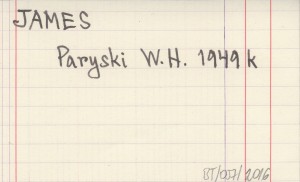 JAMES
Paryski W.H. 1949 k
BT/007/2016